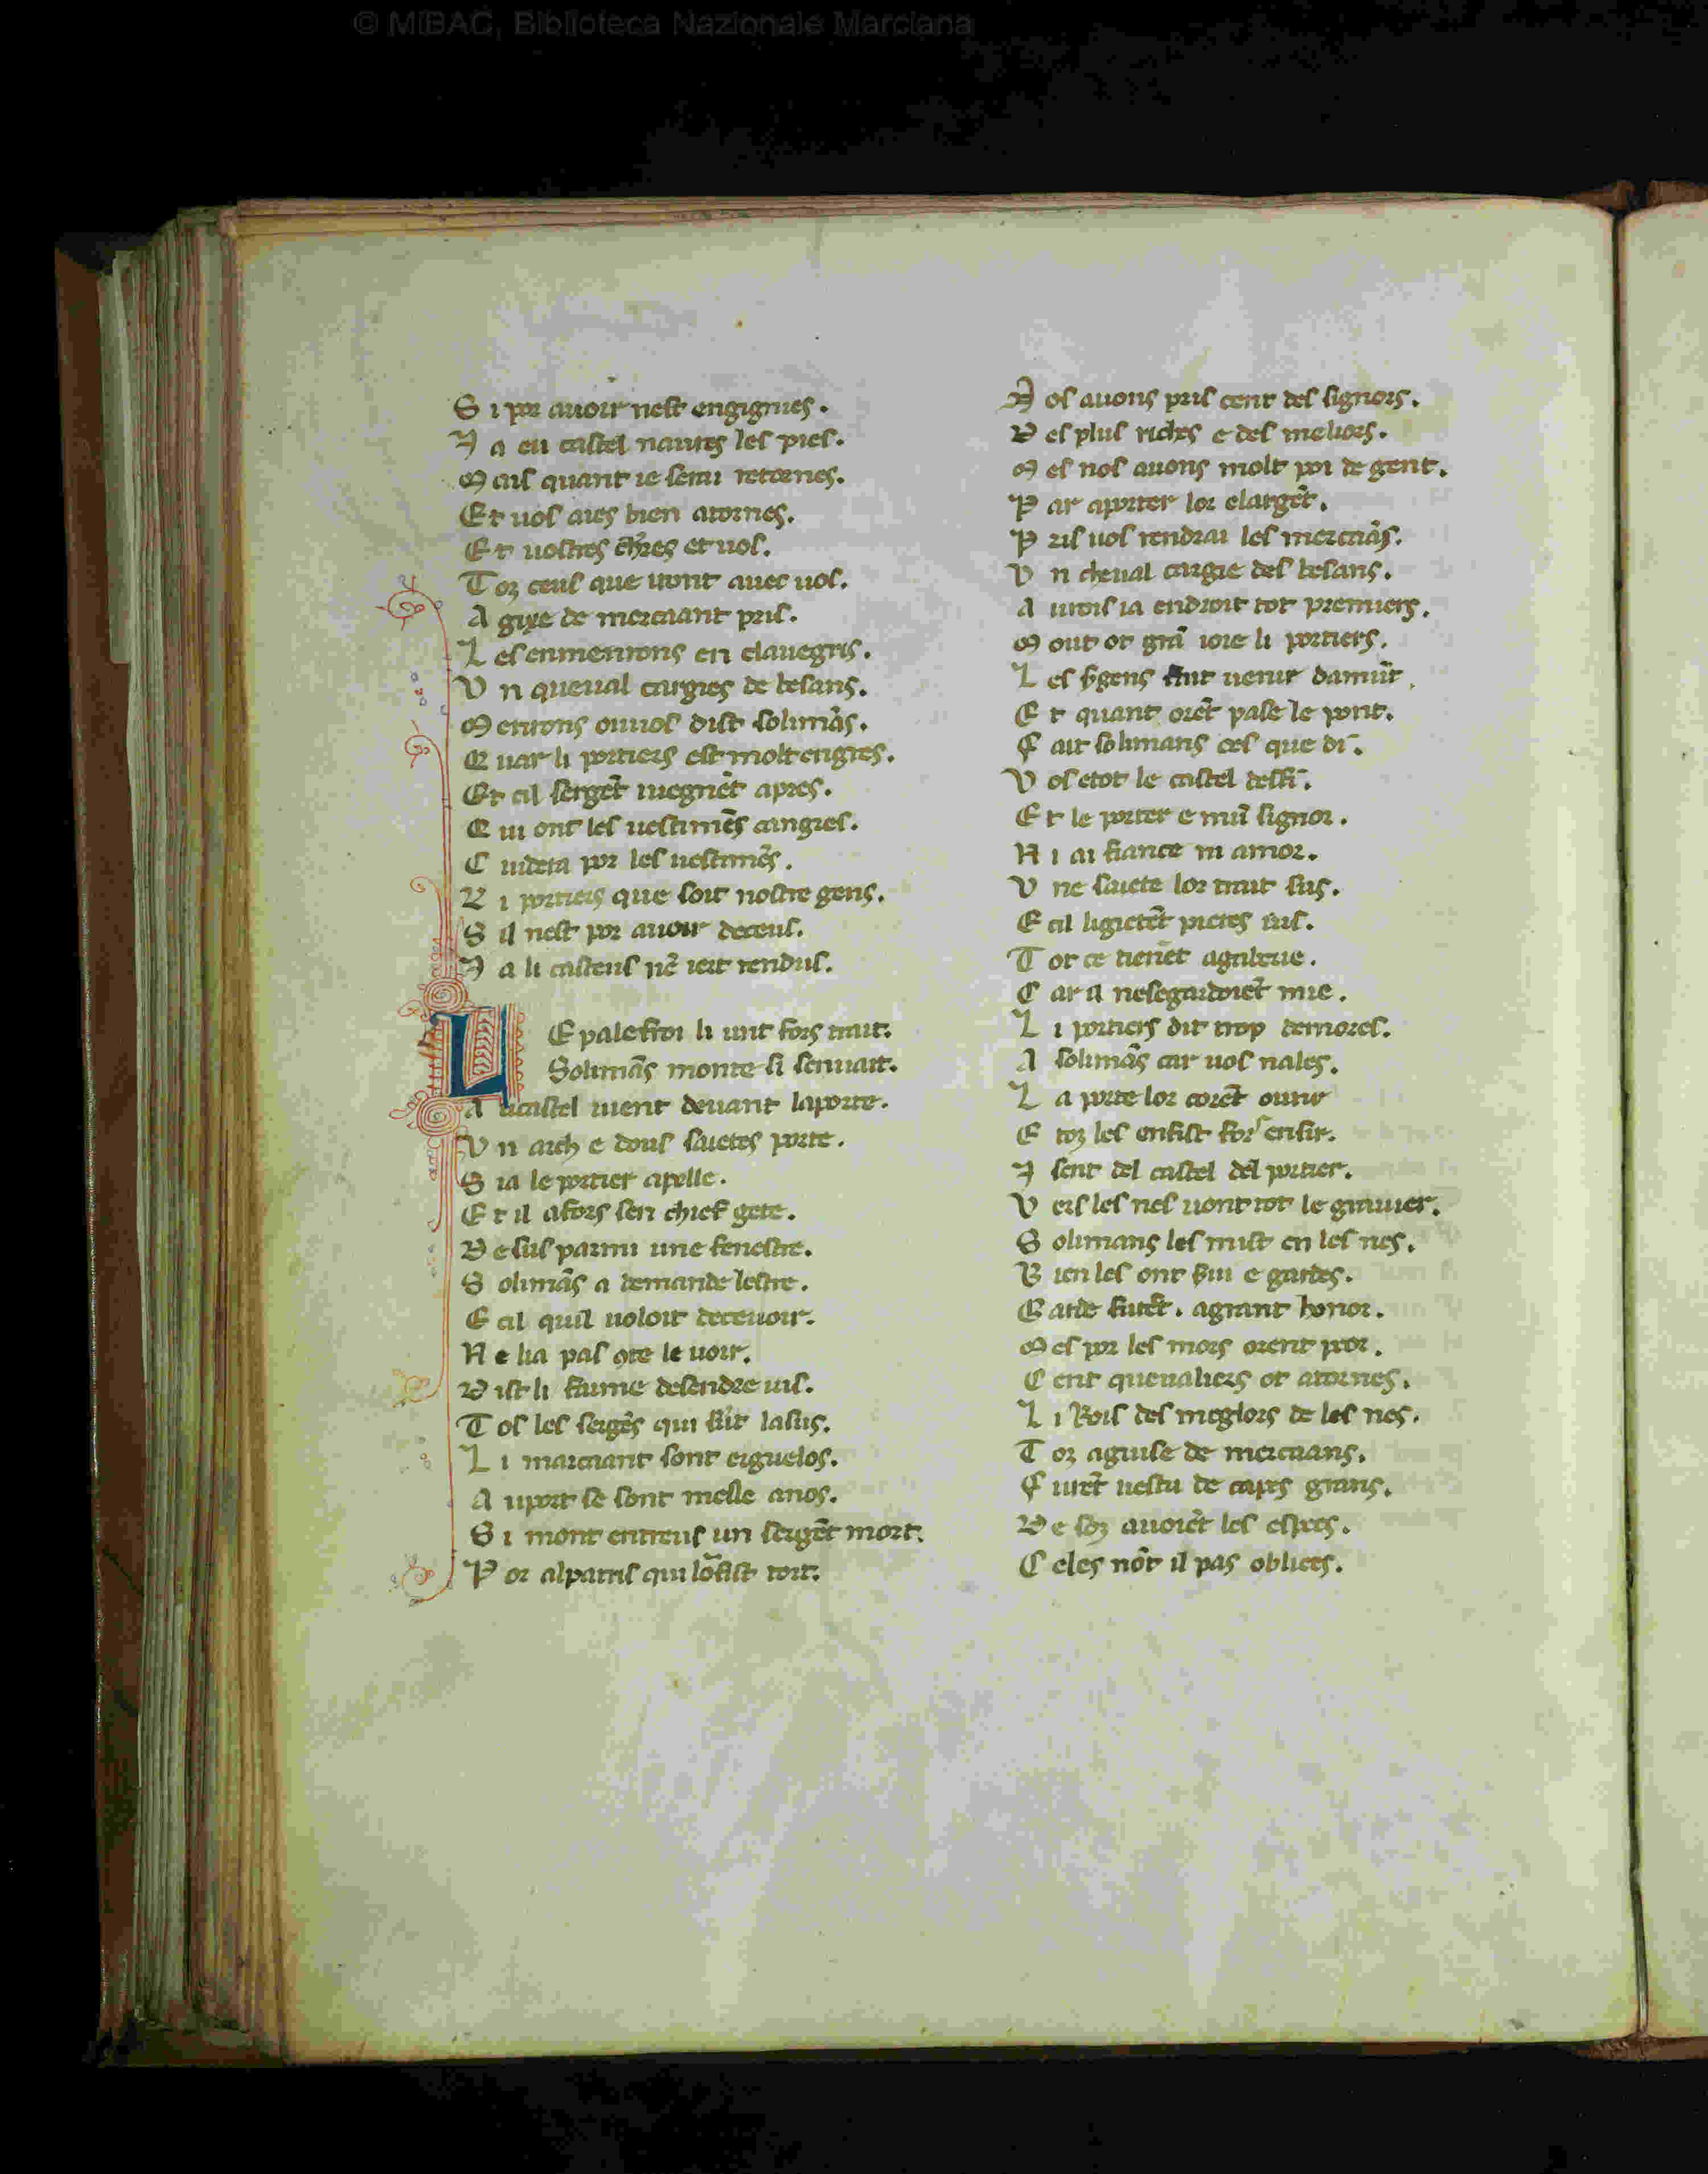 © MiBAC, Biblioteca Nazionale Marciana
S i por auoir nest engignies.
J a en castel nautes les pies.
M ais quant ie serai retornes.
Et uos aies bien atornes.
E t uostres ch̄res et uos.
T oz ceus que uont auec uos.
A gixe de mercaant pris.
L es enmenrons en clauegris.
U n queual cargies de besans.
M enrons ouuos dist solimās.
Q uar li portiers est molt engres.
Et cil sergēt uiegnēt apres.
Q ui ont les uestimēs cangies.
C uidera por les uestimēs.
L i portiers que soit nostre gens.
S il nest por auoir deceus.
J a li casteus nē iert rendus.
L E palefroi li unt fors trait.
Solimās monte si senuait.
A ucastel uient deuant laporte.
U n arch e dous saietes porte.
S ia le portier apelle.
E t il afors sen chief gete.
D esus parmi une fenestre.
S olimās a demande lestre.
E cil quil uoloit deceuoir.
N e lia pas 9te le uoir.
D ist li faume desendre uis.
T os les sergēs qui sūt lasus.
L i marcaant sont erguelos.
A uport se sont mesle anos.
S i mont entreus un sergēt mort.
P or alpatris qui lōfist tort.
N os auons pris cent des signors.
D es plus riches e des meliors.
M es nos auons molt poi de gent.
P ar aporter lor elargēt.
P ris uos rendrai les mercaās.
U n cheual cargie des besans.
A urois ia endroit tot premiers.
M out ot grā ioie li portiers.
L es s̄gens fait uenir damūt.
E t quant orēt pase le pont.
F ait solimans ces que dī.
U os etot le castel desfī.
E t le porter e mūl signor.
N i ai fiance ni amor.
U ne saiete lor trait sus.
E cil ligietēt pieres ius.
T ot ce tienēt agabeue.
C ar il nesegardoiēt mie.
L i portiers dit trop demores.
A solimās car uos nales.
L a porte lor corēt ouurir
E toz les enfist fors ensir.
J sent del castel del portier.
U ers les nes uont tot le grauier.
S olimans les mist en les nes.
B ien les ont s̄ui e gardes.
G arde furēt. agrant honor.
M es por les mors orent peor.
C ent queualiers ot atornes.
L i Rois des meglors de les nes.
T oz aguise de mercaans.
F urēt uestu de capes grans.
D e soz auoiēt les espees.
C eles nōt il pas obliees.